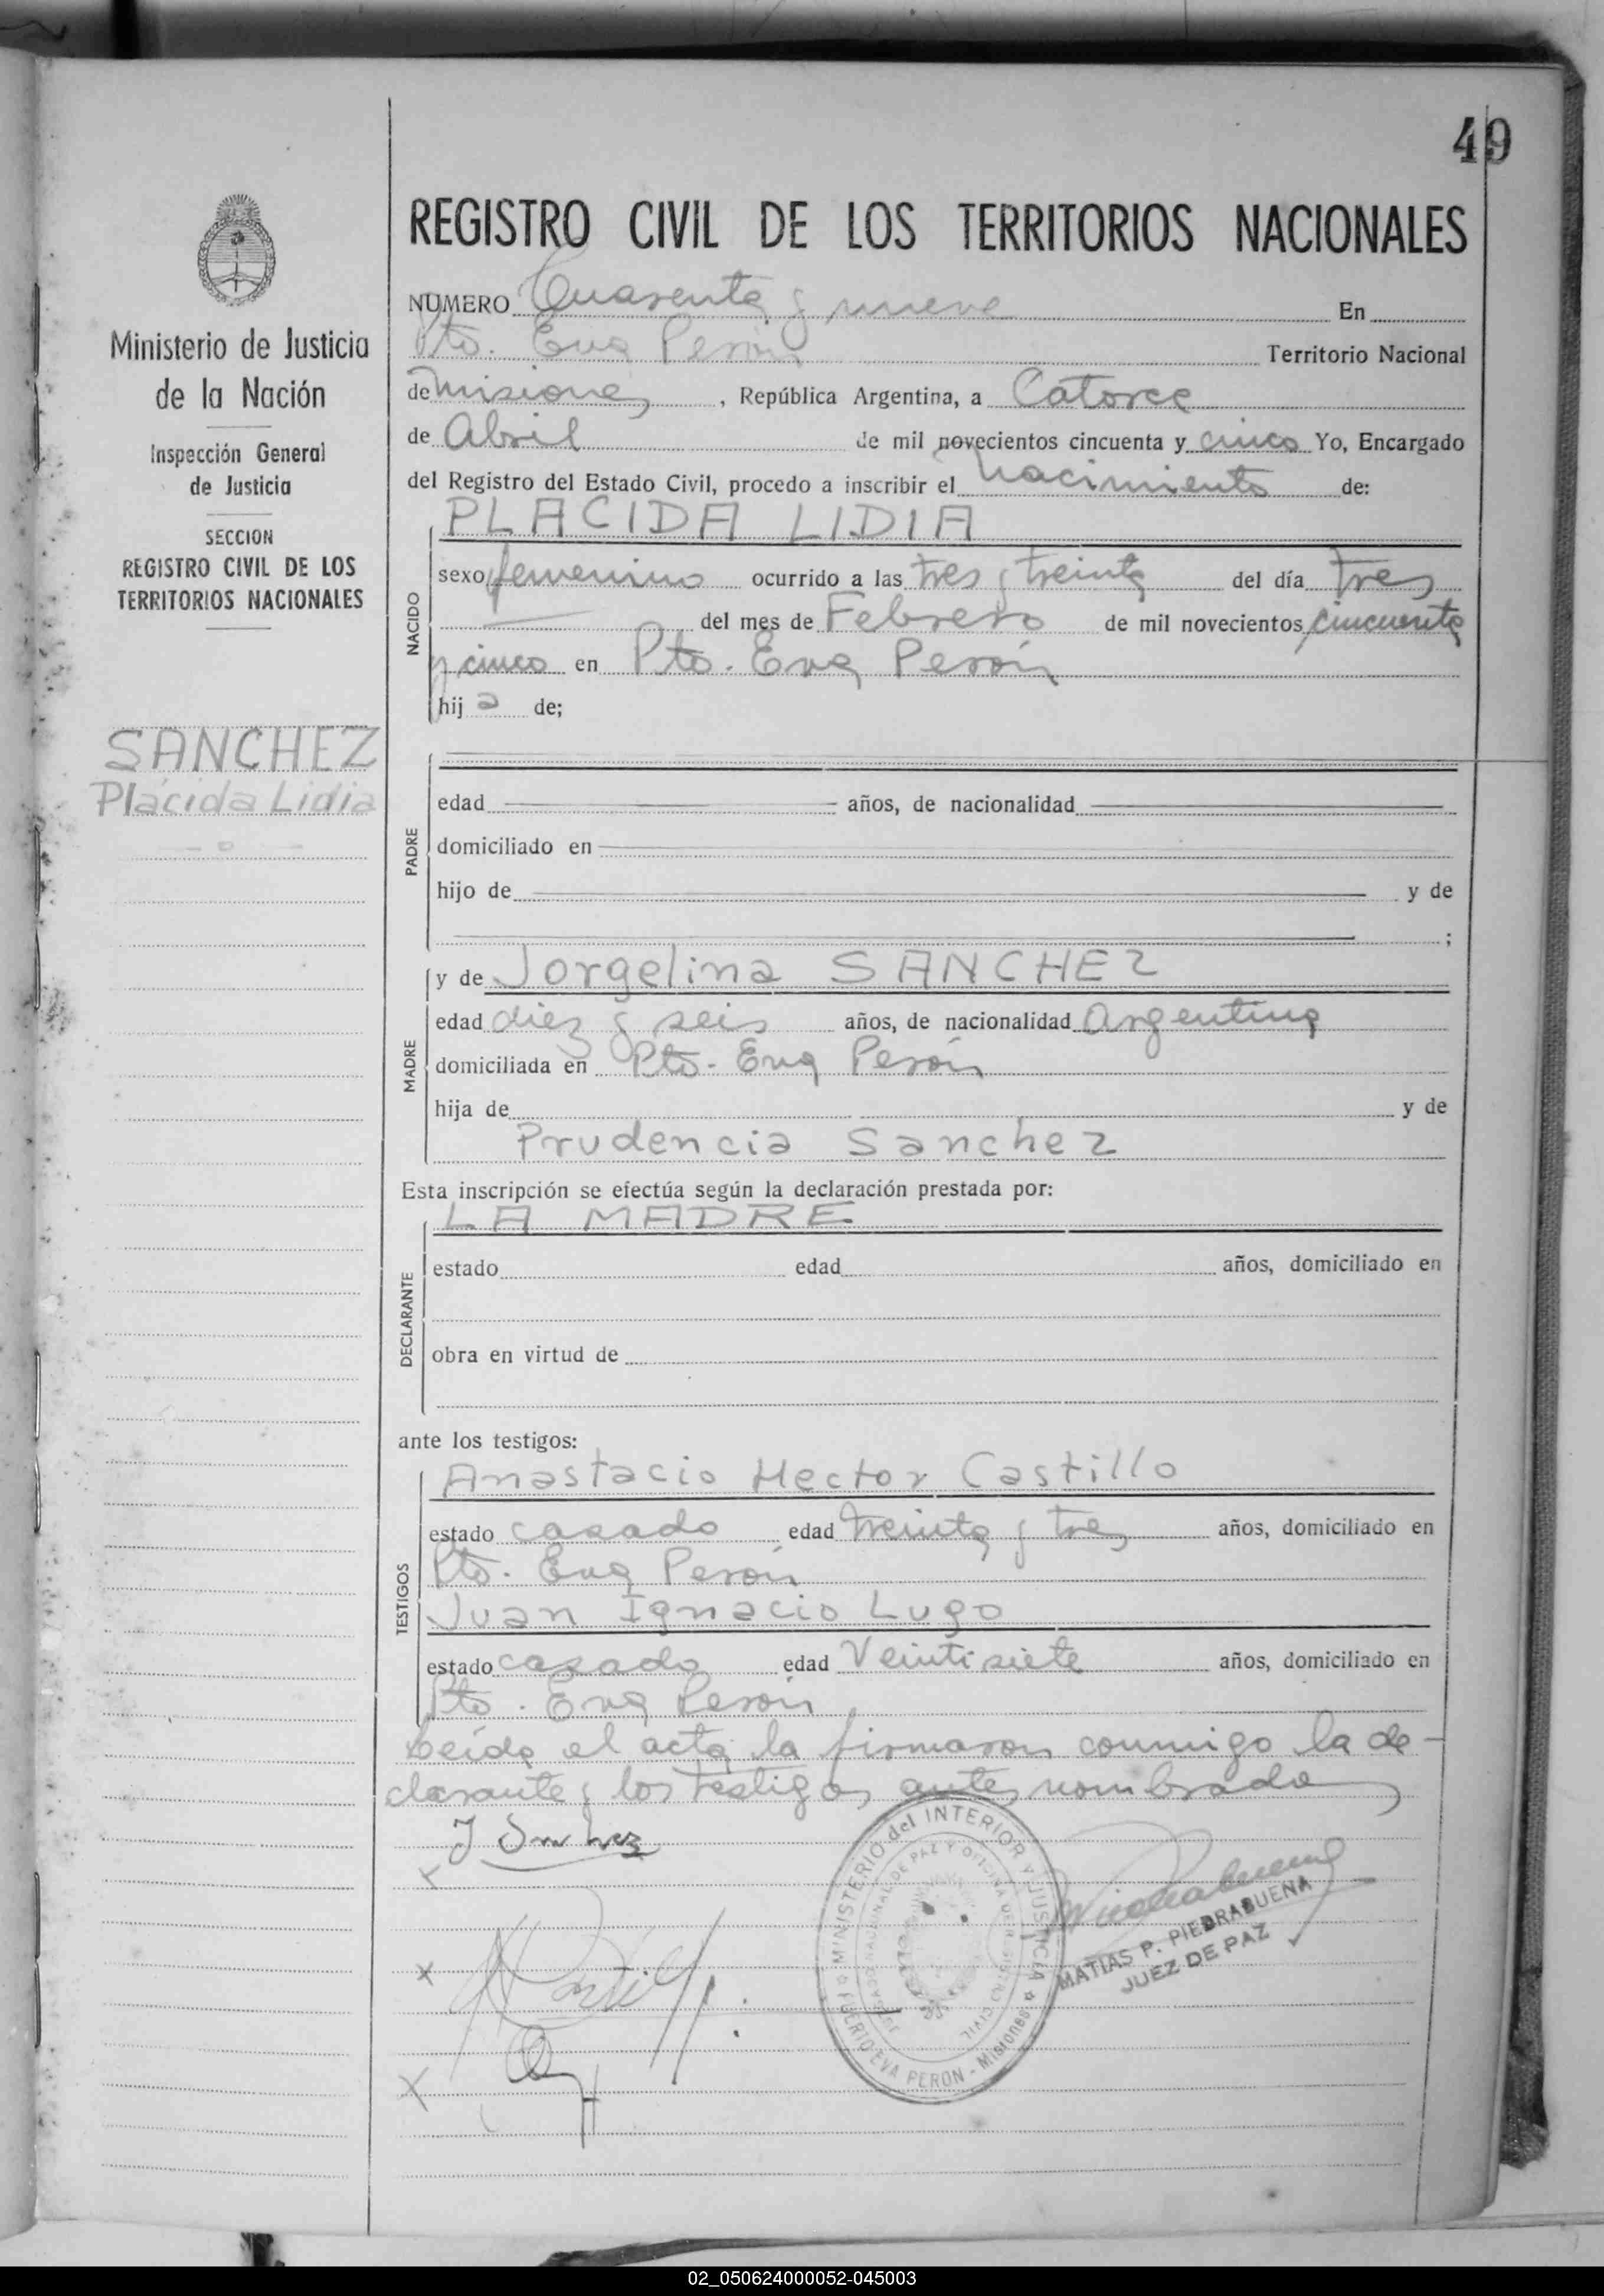 49
REGISTRO CIVIL DE LOS TERRITORIOS NACIONALES
Ministerio de Justicia
de la Nación
Inspección General
de Justicia
SECCION
REGISTRO CIVIL DE LOS
TERRITORIOS NACIONALES
SANCHEZ
Plácida Lidia
NUMERO Cuarenta y nueve En
Pto. Eva Perón Territorio Nacional
de Misiones, República Argentina, a Catorce
de Abril de mil novecientos cincuenta y cinco Yo, Encargado
del Registro del Estado Civil, procedo a inscribir el Nacimiento de:
NACIDO
PLACIDA LIDIA
sexo femenino ocurrido a las tres y treinta del día tres
del mes de Febrero de mil novecientos cincuenta
y cinco en Pto. Eva Perón
hija de;
PADRE
edad años, de nacionalidad
domiciliado en
hijo de y de
;
MADRE
y de Jorgelina SANCHEZ
edad diez y seis años, de nacionalidad Argentina
domiciliada en Pto. Eva Perón
hija de y de
Prudencia Sanchez
Esta inscripción se efectúa según la declaración prestada por:
DECLARANTE
LA MADRE
estado edad años, domiciliado en
obra en virtud de
ante los testigos:
TESTIGOS
Anastacio Hector Castillo
estado casado edad treinta y tres años, domiciliado en
Pto. Eva Perón
Juan Ignacio Lugo
estado casado edad Veintisiete años, domiciliado en
Pto. Eva Perón
Leída el acta la firmaron conmigo la de-
clarante y los testigos antes nombrados
J Snchez
MINISTERIO del INTERIOR y JUSTICIA
JUZGADO NACIONAL DE PAZ Y OFICINA DE REGISTRO CIVIL
PUERTO EVA PERON - Misiones
MATIAS P. PIEDRABUENA
JUEZ DE PAZ
02_050624000052-045003